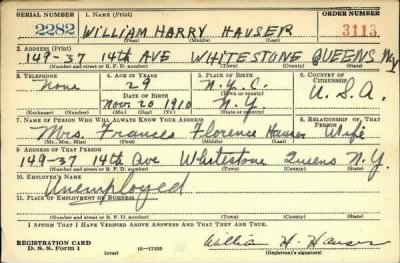 SERIAL NUMBER 1. NAME (Print) ORDER NUMBER
2282 WILLIAM HARRY HAUSER 3113
(First) (Middle) (Last)
2. ADDRESS (Print)
149-37 14th AVE WHITESTONE QUEENS NY
(Number and street or R. F. D. number) (Town) (County) (State)
3. TELEPHONE 4. AGE IN YEARS 5. PLACE OF BIRTH 6. COUNTRY OF CITIZENSHIP
None 29 N.Y.C. U.S.A.
DATE OF BIRTH (Town or county)
Nov. 20 1910 N.Y.
(Exchange) (Number) (Mo.) (Day) (Yr.) (State or country)
7. NAME OF PERSON WHO WILL ALWAYS KNOW YOUR ADDRESS 8. RELATIONSHIP OF THAT PERSON
Mrs. Frances Florence Hauser Wife
(Mr., Mrs., Miss) (First) (Middle) (Last)
9. ADDRESS OF THAT PERSON
149-37 14th Ave Whitestone Queens N.Y.
(Number and street or R. F. D. number) (Town) (County) (State)
10. EMPLOYER'S NAME
Unemployed
11. PLACE OF EMPLOYMENT OR BUSINESS
(Number and street or R. F. D. number) (Town) (County) (State)
I AFFIRM THAT I HAVE VERIFIED ABOVE ANSWERS AND THAT THEY ARE TRUE.
REGISTRATION CARD William H. Hauser
D. S. S. Form 1 (over) 16-17105 (Registrant's signature)